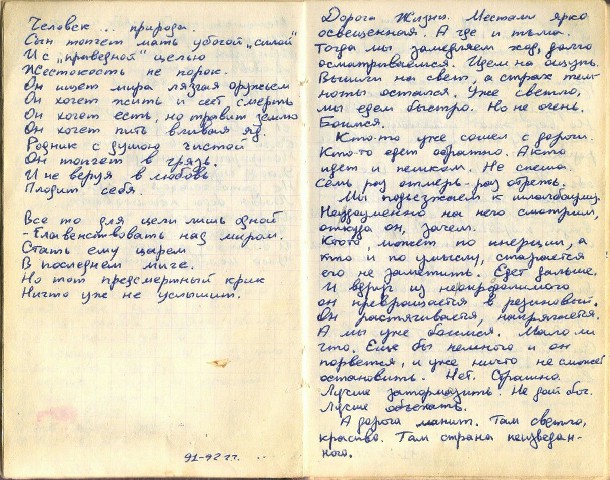 Человек ... природа.
Сын топчет мать убогой "силой"
И с "праведной" целью
Жестокость не порок.
Он ищет мира лязгая оружьем
Он хочет жить и сеет смерть
Он хочет есть, но травит землю
Он хочет пить вливая яд.
Родник с душою чистой
Он топчет в грязь.
И не веруя в любовь
Плодит себя.
Все то для цели лишь одной
- Главенствовать над миром.
Стать ему царем
В последнем миге.
Но тот предсмертный крик
Ничто уже не услышит.
91-92 гг.
Дорога Жизни. Местами ярко
освещенная. А где и тьма.
Тогда мы замедляем ход, долго
осматриваемся. Идем на ощупь.
Вышли на свет, а страх тем-
ноты остался. Уже светло,
мы едем быстро. Но не очень.
Боимся.
Кто-то уже сошел с дороги.
Кто-то едет обратно. А кто
идет и пешком. Не спеша.
Семь раз отмерь - раз отрежь.
Мы подъезжаем к шлагбауму.
Недоуменно на него смотрим,
откуда он, зачем.
Кто-то, может по инерции, а
кто и по умыслу, старается
его не заметить. Едет дальше.
И вдруг из непреодолимого
он превращается в резиновый.
Он растягивается, напрягается.
А мы уже боимся. Мало ли
что. Еще бы немного и он
порвется, и уже ничто не сможет
остановить. Нет. Страшно.
Лучше затормозить. Не дай бог.
Лучше объехать.
А дорога манит. Там светло,
красиво. Там страна неизведан-
ного.